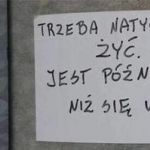 TRZEBA NATYC
ŻYĆ.
JEST PÓŹN
NIŻ SIĘ W